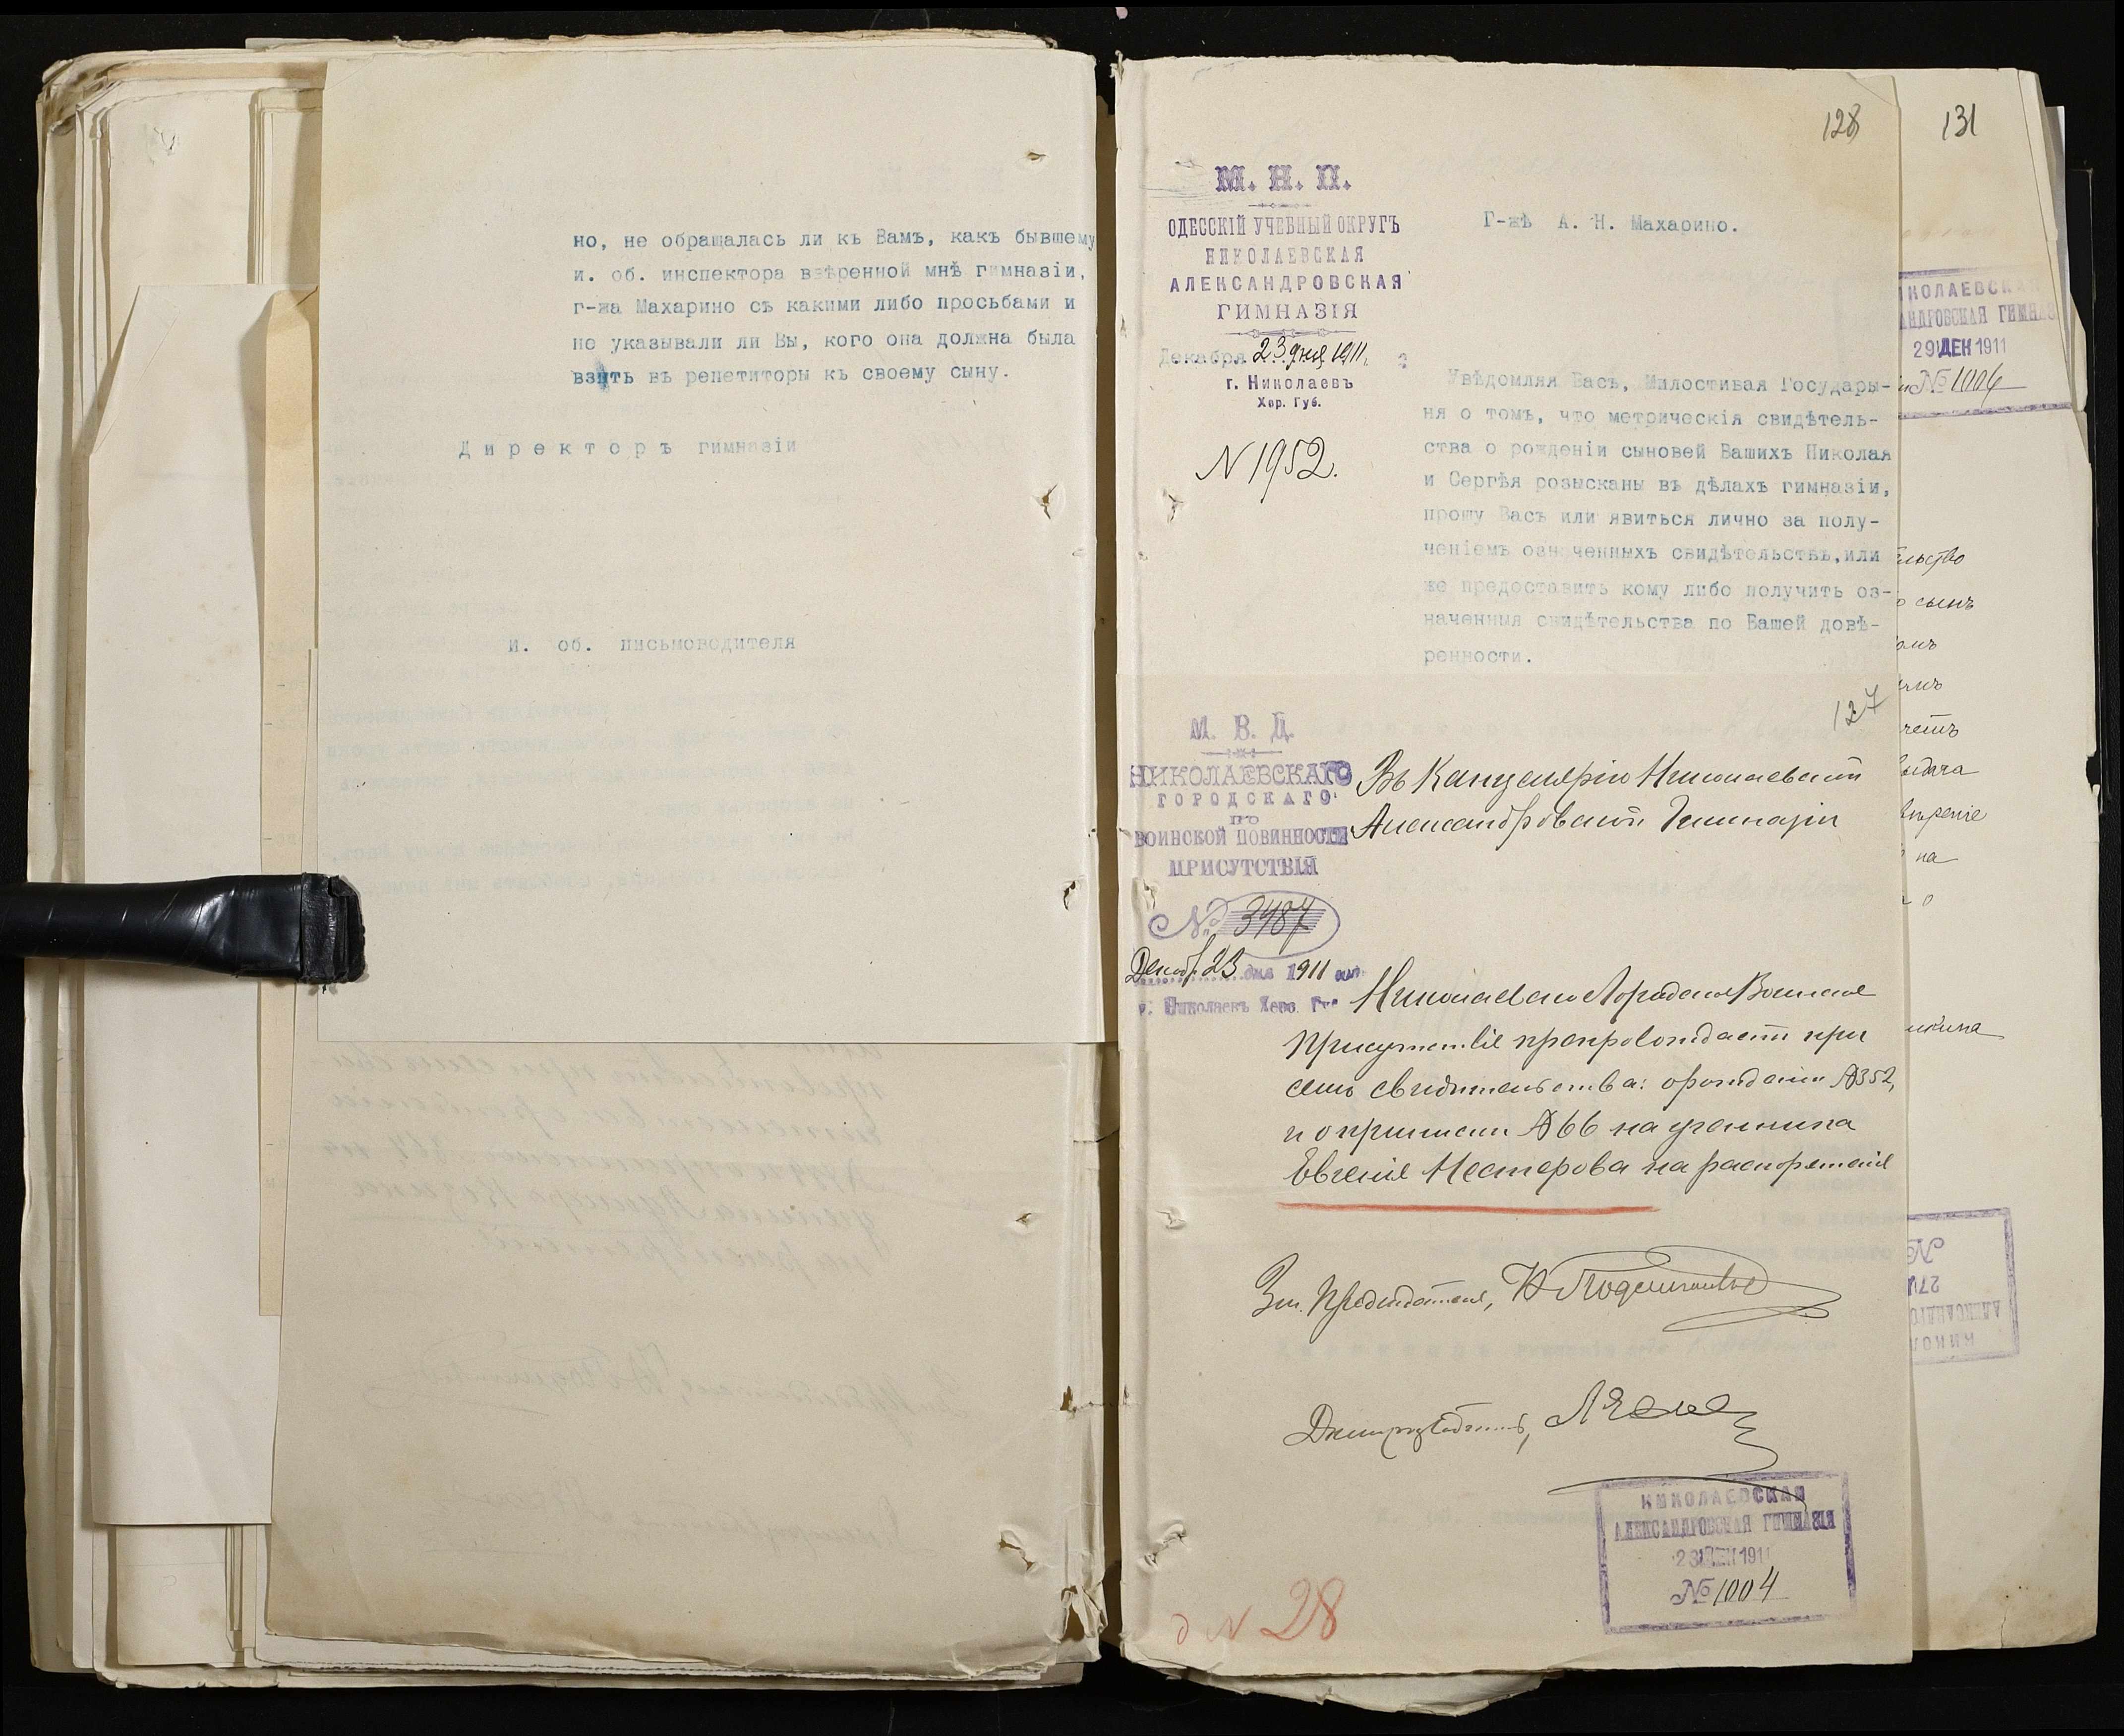 но, не обращалась ли къ Вамъ, какъ бывшему
и. об. инспектора ввѣренной мнѣ гимназіи,
г-жа Махарино съ какими либо просьбами и
не указывали ли Вы, кого она должна была
взять въ репетиторы къ своему сыну.
Директоръ гимназіи
И. об. письмоводителя
128
М. Н. П.
ОДЕССКІЙ УЧЕБНЫЙ ОКРУГЪ
НИКОЛАЕВСКАЯ
АЛЕКСАНДРОВСКАЯ
ГИМНАЗІЯ
Декабря 23 дня 1911 г.
г. Николаевъ
Хер. Губ.
N 1952.
Г-жѣ А. Н. Махарино.
Увѣдомляя Васъ, Милостивая Государы-
ня о томъ, что метрическія свидѣтель-
ства о рожденіи сыновей Вашихъ Николая
и Сергѣя розысканы въ дѣлахъ гимназіи,
прошу Васъ или явиться лично за полу-
ченіемъ означенныхъ свидѣтельствъ, или
же предоставить кому либо получить оз-
наченныя свидѣтельства по Вашей довѣ-
ренности.
127
М. В. Д.
НИКОЛАЕВСКАГО
ГОРОДСКАГО
ПО
ВОИНСКОЙ ПОВИННОСТИ
ПРИСУТСТВІЯ
№ 3487
Декаб. 23 дня 1911 года
г. Николаевъ Херс. Губ.
Въ Канцелярію Николаевской
Александровской Гимназіи
Николаевское Городское Воинское
Присутствіе препровождаетъ при
семъ свидѣтельства: о рожденіи №352,
и о припискѣ №66 на ученика
Евгенія Нестерова на распоряженіе
Зам. Предсѣдателя,
Дѣлопроизводитель,
НИКОЛАЕВСКАЯ
АЛЕКСАНДРОВСКАЯ ГИМНАЗІЯ
23 ДЕК 1911
№ 1004
д N 28
131
НИКОЛАЕВСКАЯ
АНДРОВСКАЯ ГИМНАЗ
29 ДЕК 1911
№ 1006
льство
сынъ
выдача
на
о
№
27